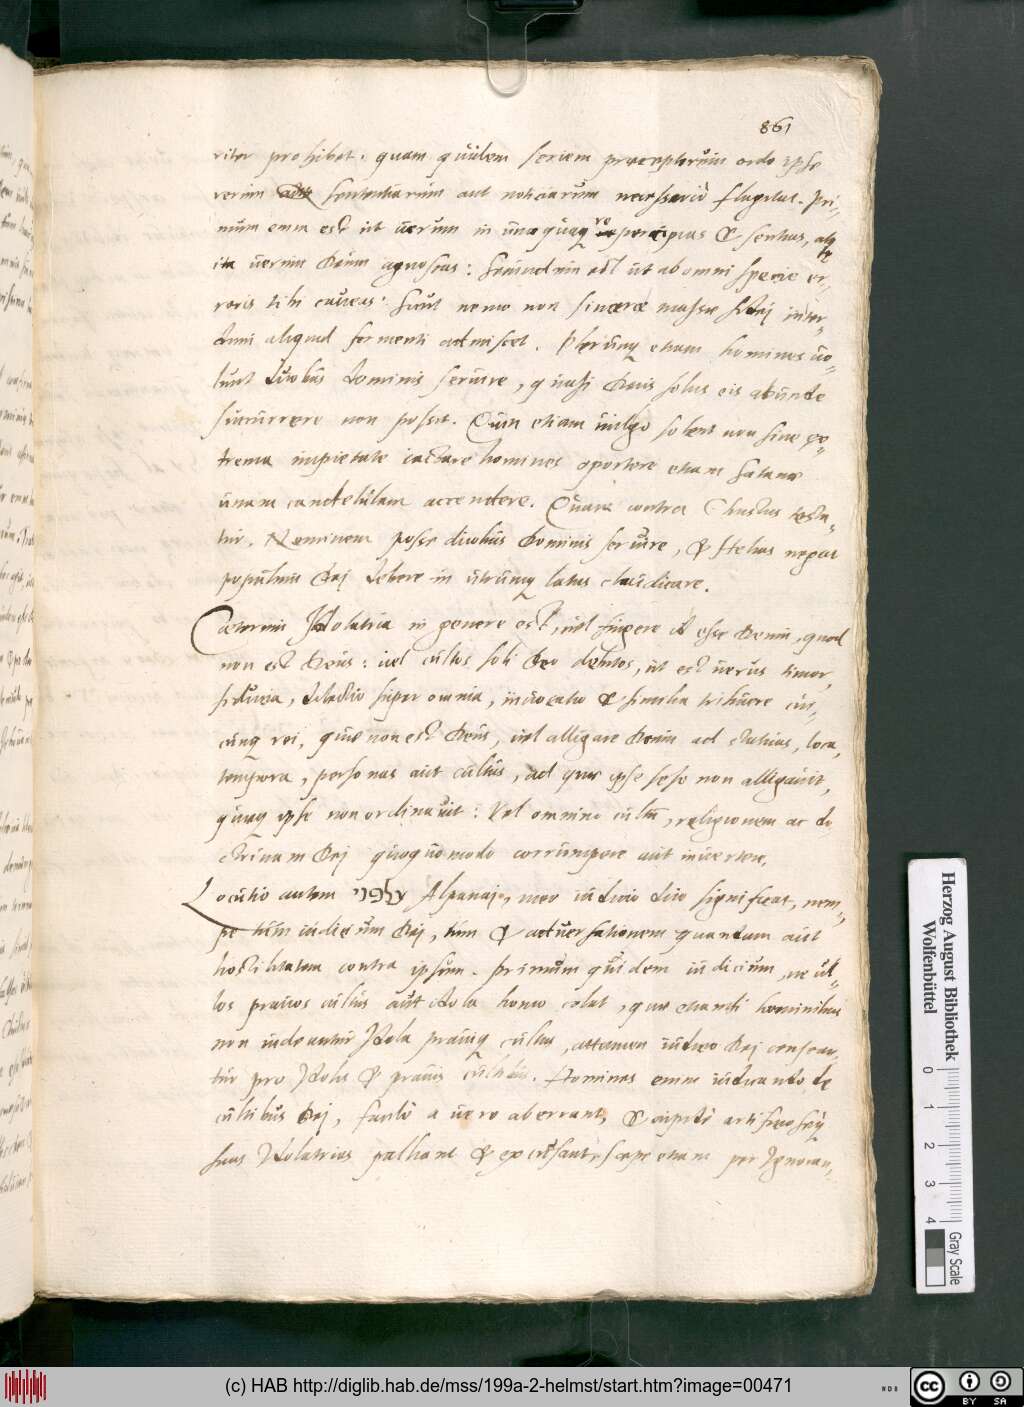 861
riter prohibet. quam quidem seriem praeceptorum ordo ipse
rerum sententiarum aut noticiarum necessario flagitat. Pri-
mum enim est ut verum in unaquaq re percipias & sentias, atq
ita verum Deum agnoscas: secundum est ut ab omni specie er-
roris tibi caveas: sicut nemo non sincerae massae fidei inter-
dum aliquid fermenti admiscet. Plerunq etiam homines vo-
lunt duobus dominis servire, quasi Deus solus eis abunde
succurrere non possit. Quin etiam vulgo solent non sine ex-
trema impietate iactare homines oportere etiam Satanae
unam candelulam accendere. Quare contra Christus testa-
tur. Neminem posse duobus Dominis servire, & Helias negat
populum Dei debere in utrunq latus claudicare.
Caeterum Idolatria in genere est, vel fingere id esse Deum, quod
non est Deus: vel cultus soli Deo debitos, ut est verus timor,
fiducia, dilectio super omnia, invocatio & similia tribuere cui-
cunq rei, quae non est Deus, vel alligare Deum ad statuas, loca,
tempora, personas aut cultus, ad quae ipse sese non alligavit,
quaq ipse non ordinavit: Vel omnino cultum, religionem ac do
ctrinam Dei quoquomodo corrumpere aut invertere.
Locutio autem עלפני Alpanai, meo iudicio duo significat, nem-
pe tum iudicium Dei, tum & adversationem quandam aut
hostilitatem contra ipsum. Primum quidem iudicium, ne ul-
los pravos cultus aut Idola homo colat, quae etiamsi hominibus
non videantur Idola pravusq cultus, attamen iudicio Dei censean-
tur pro Idolis & pravis cultibus. Homines enim iudicando de
cultibus Dei, facile a vero aberrant, & cupide artificioseq
suas Idolatrias palliant & excusant, saepe etiam per Ignoran-
Herzog August Bibliothek
Wolfenbüttel
0 1 2 3 4
Gray Scale
(c) HAB http://diglib.hab.de/mss/199a-2-helmst/start.htm?image=00471
cc BY SA